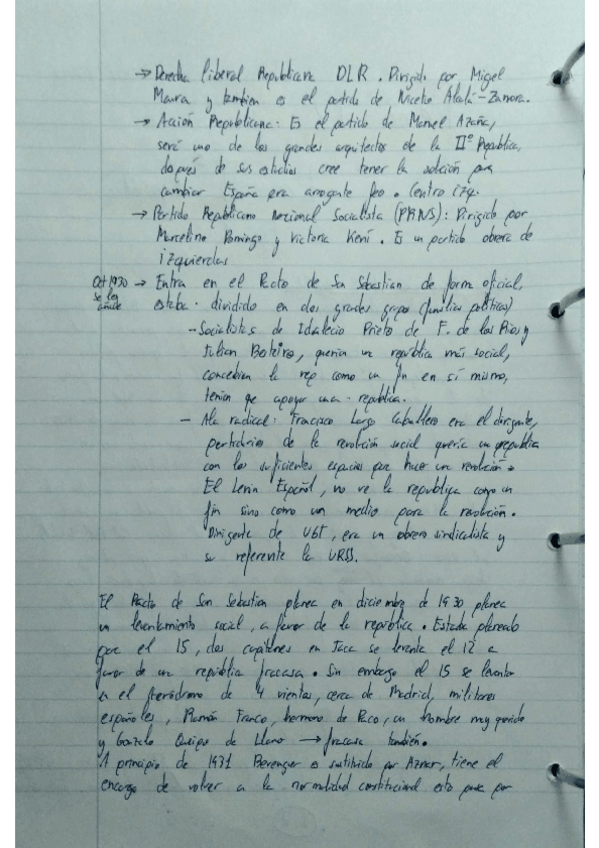 → Derecha liberal Republicana DLR. Dirigido por Migel
Maura y tambien es el partido de Niceto Alcalá-Zamora.
→ Acción Republicana: Es el partido de Manuel Azaña,
será uno de los grandes arquitectos de la IIº Republica,
después de sus estudios cree tener la solución para
cambiar España era arrogante feo. Centro izq.
→ Partido Republicano Nacional Socialista (PRNS): Dirigido por
Marcelino Domingo y Victoria Kent. Es un partido obrero de
izquierdas
Oct 1930 → Entra en el Pacto de San Sebastian de forma oficial,
se les añade estaba dividido en dos grandes grupos (familias políticas)
- Socialistas de Idalecio Prieto de F. de los Rios y
Julian Besteiro, querian un república más social,
concebian la rep como un fin en sí mismo,
tenian que apoyar una república.
- Ala radical: Francisco Largo Caballero era el dirigente,
partidario de la revolución social quería un republica
con los suficientes espacios para hacer un revolución.
El Lenin Español, no ve la republica como un
fin sino como un medio para la revolución.
Dirigente de UGT, era un obrero sindicalista y
su referente la URSS.
El Pacto de San Sebastian planea en diciembre de 1930 planea
un levantamiento social, a favor de la república. Estaba planeado
para el 15, dos capitanes en Jaca se levanta el 12 a
favor de una república fracasa. Sin embargo el 15 se levanta
en el Aeródromo de 4 vientos, cerca de Madrid, militares
españoles, Ramón Franco, hermano de Paco, un hombre muy querido
y Gonzalo Queipo de Llano → fracasa también.
A principio de 1931 Berenguer es sustituido por Aznar, tiene el
encargo de volver a la normalidad constitucional esto pasa por